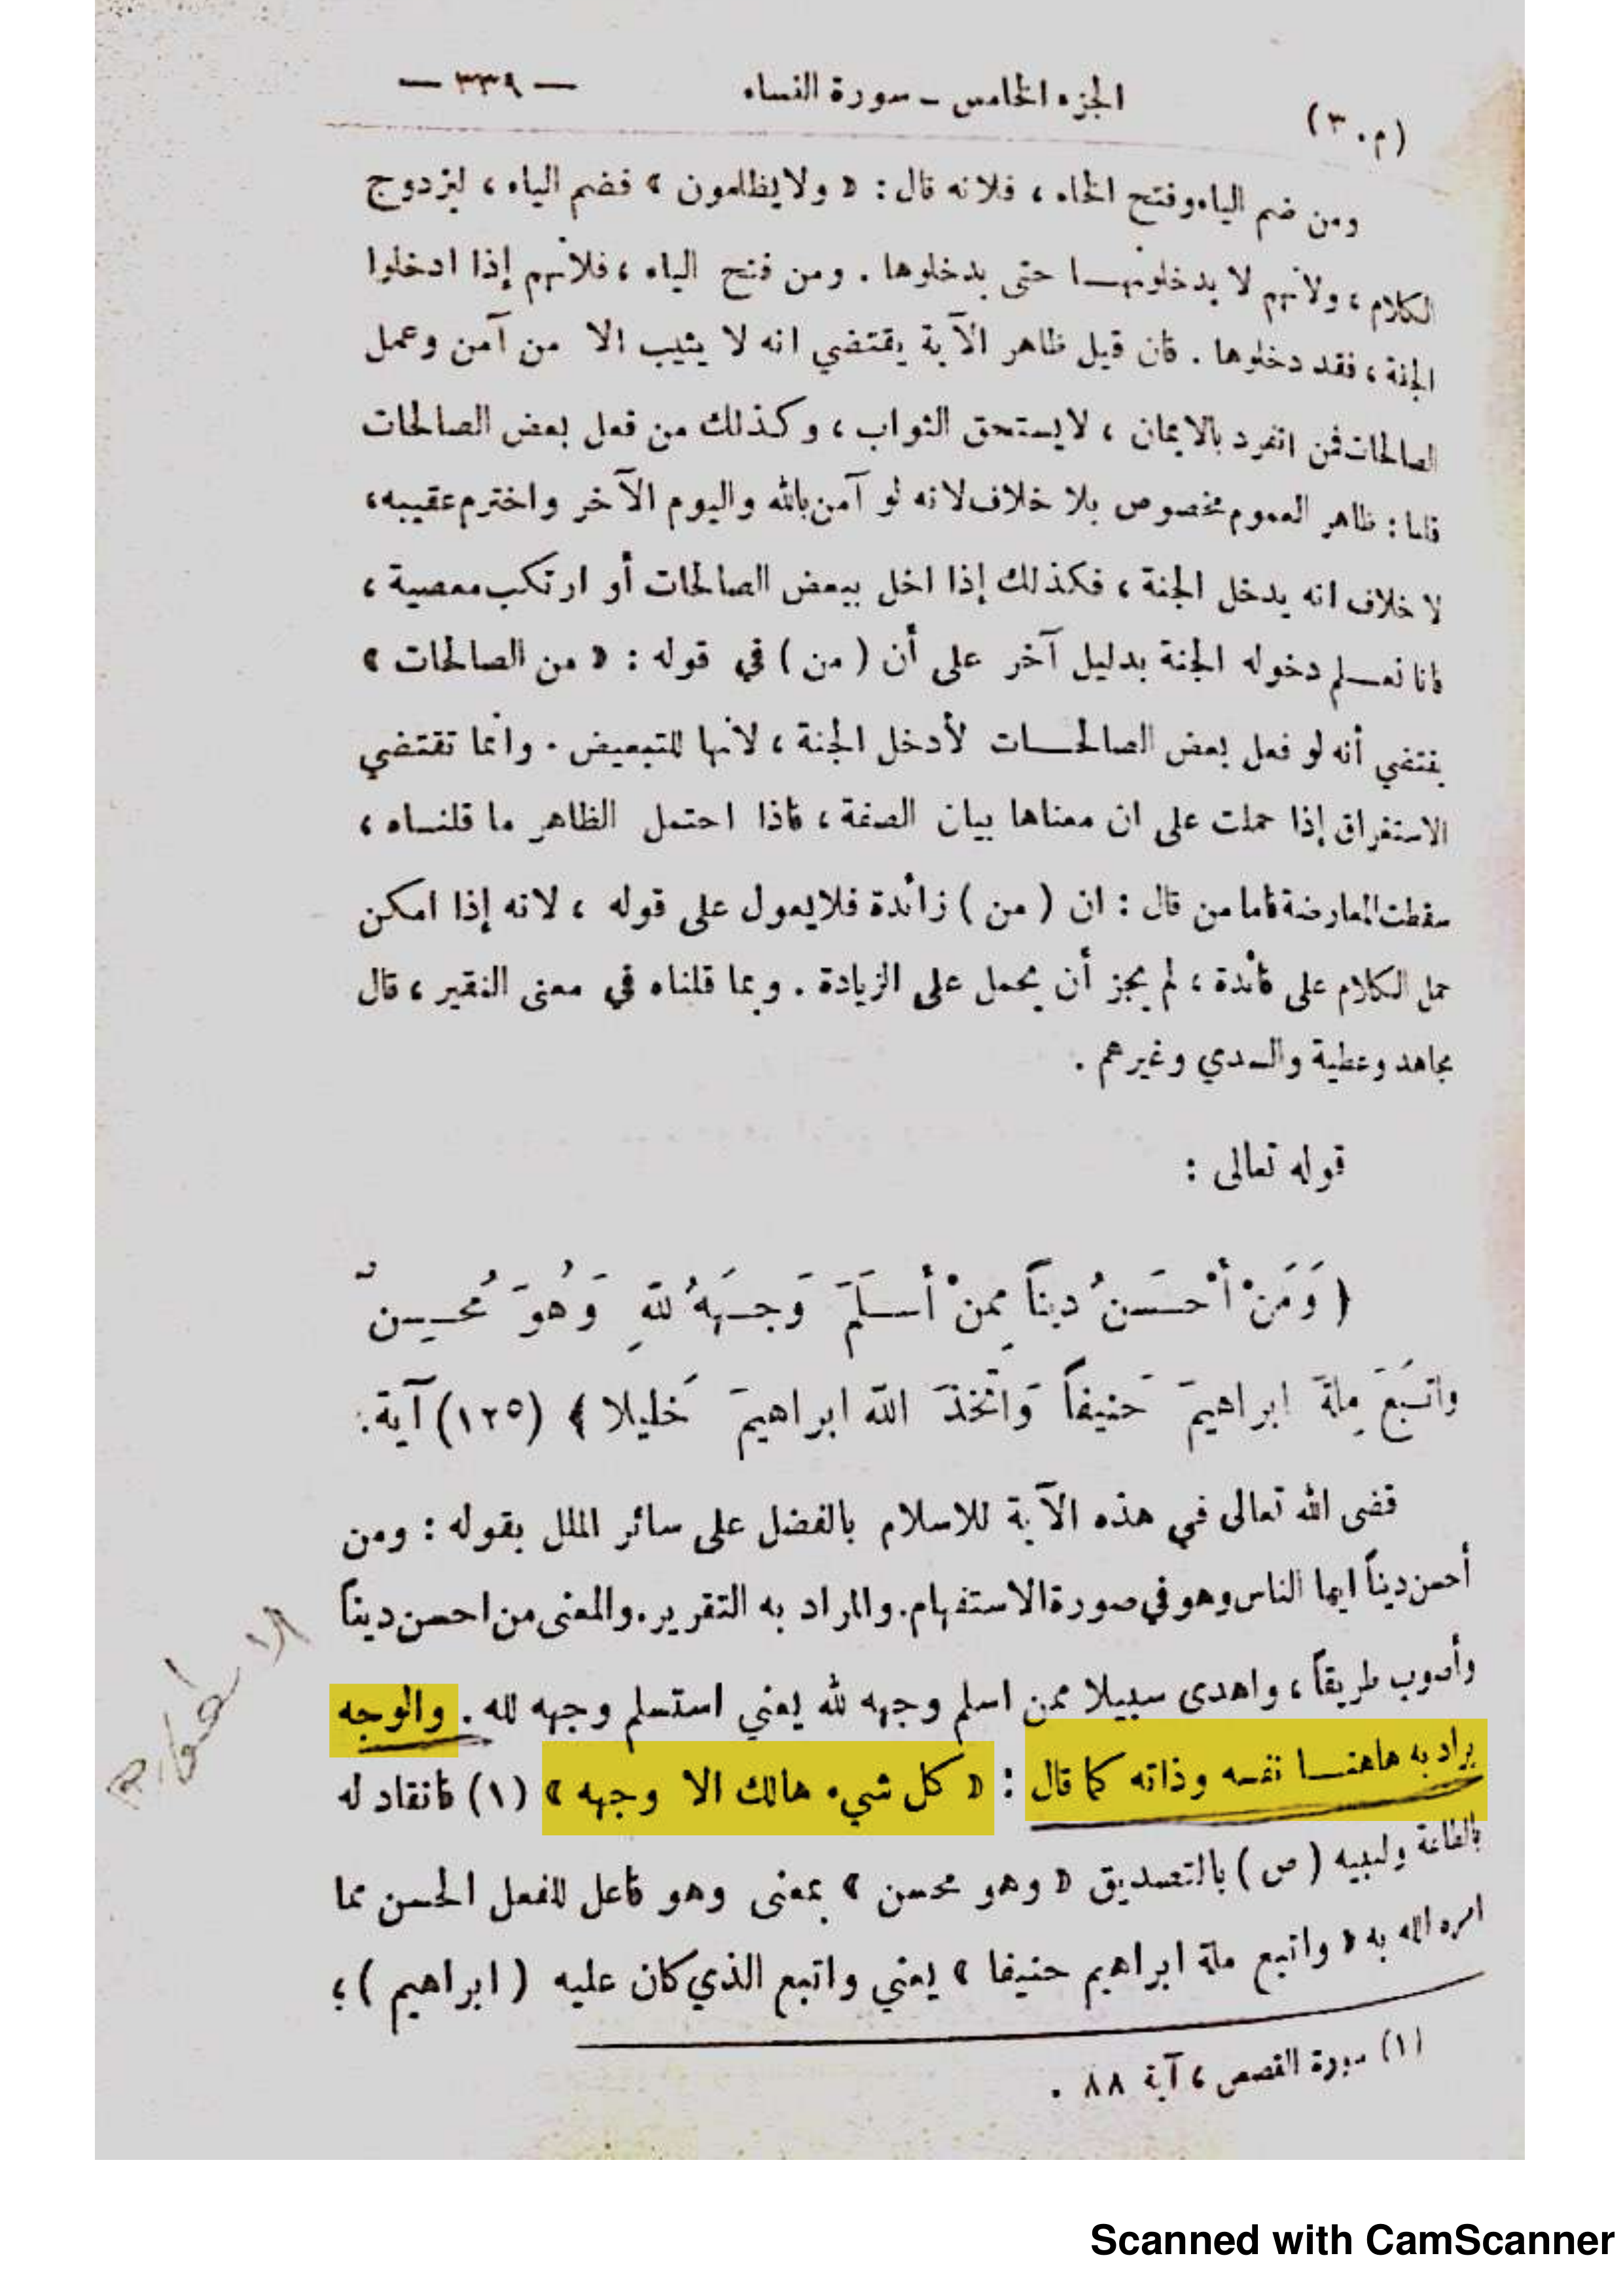 (م. ٣) الجزء الخامس - سورة النساء — ٣٣٩ —
ومن ضم الياء وفتح الخاء ، فلانه قال : « ولا يظلمون » فضم الياء ، ليزدوج
الكلام ، ولانهم لا يدخلونهـا حتى يدخلوها . ومن فتح الياء ، فلأنهم إذا ادخلوا
الجنة ، فقد دخلوها . فان قيل ظاهر الآية يقتضي انه لا يثيب الا من آمن وعمل
الصالحات فمن انفرد بالايمان ، لا يستحق الثواب ، وكذلك من فعل بعض الصالحات
قلنا : ظاهر العموم مخصوص بلا خلاف لانه لو آمن بالله واليوم الآخر واخترم عقيبه ،
لا خلاف انه يدخل الجنة ، فكذلك إذا اخل ببعض الصالحات أو ارتكب معصية ،
فانا نعـلم دخوله الجنة بدليل آخر على أن ( من ) في قوله : « من الصالحات »
يقتضي أنه لو فعل بعض الصالحـات لأدخل الجنة ، لأنها للتبعيض . وانما تقتضي
الاستغراق إذا حملت على ان معناها بيان الصفة ، فاذا احتمل الظاهر ما قلنـاه ،
سقطت المعارضة فاما من قال : ان ( من ) زائدة فلا يعول على قوله ، لانه إذا امكن
حمل الكلام على فائدة ، لم يجز أن يحمل على الزيادة . وبما قلناه في معنى النقير ، قال
مجاهد وعطية والسدي وغيرهم .
قوله تعالى :
﴿ وَمَنْ أَحْسَنُ ديناً مِمنْ أَسلَمَ وَجهَهُ للهِ وَهُوَ مُحسِنٌ
واتبَعَ مِلةَ ابراهيمَ حَنيفاً وَاتْخذَ اللهُ ابراهيمَ خَليلا ﴾ (١٢٥) آية .
قضى الله تعالى في هذه الآية للاسلام بالفضل على سائر الملل بقوله : ومن
أحسن ديناً ايها الناس وهو في صورة الاستفهام . والمراد به التقرير . والمعنى من احسن ديناً
وأصوب طريقاً ، واهدى سبيلا ممن اسلم وجهه لله يعني استسلم وجهه لله . والوجه
يراد به هاهنـا نفسه وذاته كما قال : « كل شيء هالك الا وجهه » (١) فانقاد له
بالطاعة ولنبيه (ص) بالتصديق « وهو محسن » بمعنى وهو فاعل للفعل الحسن مما
امره الله به « واتبع ملة ابراهيم حنيفا » يعني واتبع الذي كان عليه ( ابراهيم ) ؛
(١) سورة القصص ، آية ٨٨ .
Scanned with CamScanner